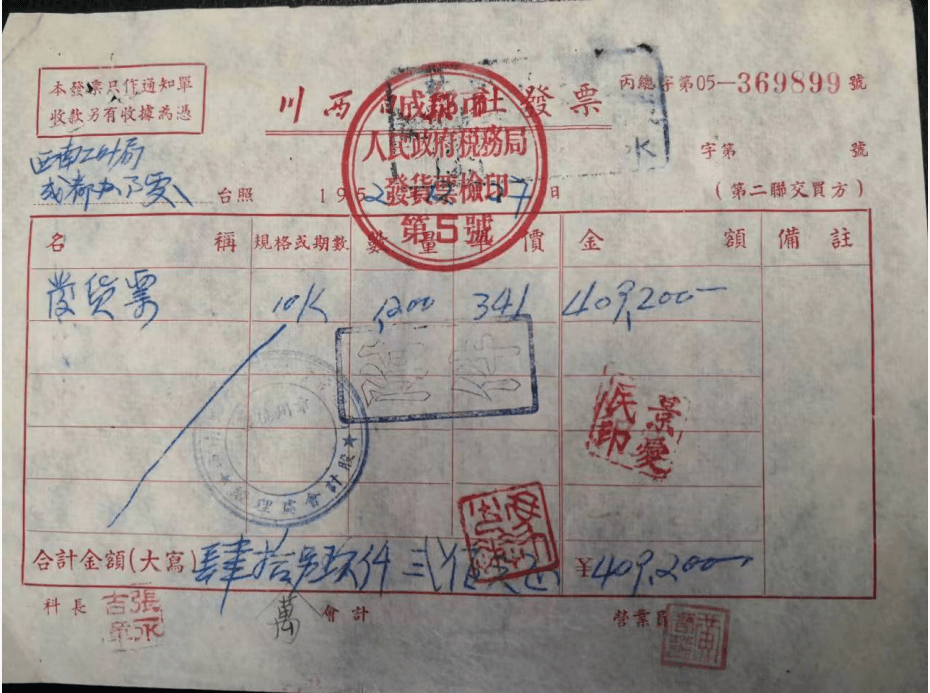 本發票只作通知單
收款另有收據為憑
川西 社發票
丙總字第05—369899號
字第 號
成都市
人民政府稅務局
發貨票檢印
第5號
西南工
成都办
台照 1952 27日 (第二聯交買方)
名稱 規格或期數 數量 單價 金額 備註
發货票 10K 1,200 341 409,200—
景愛
民印
管理處會計股
合計金額(大寫) 肆拾 玖仟 弍佰 ¥409,200—
萬
科長 會計 營業員
張永
吉章